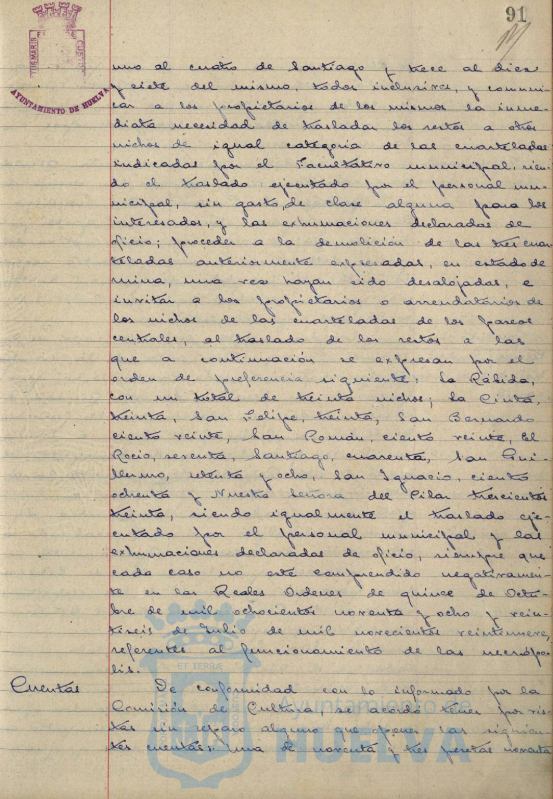 91
AYUNTAMIENTO DE HUELVA
uno al cuatro de Santiago y trece al diez
y siete del mismo, todos inclusives, y comuni-
car a los propietarios de los mismos la inme-
diata necesidad de trasladar los restos a otros
nichos de igual categoría de las cuarteladas
indicadas por el Facultativo municipal, sien-
do el traslado ejecutado por el personal mu-
nicipal, sin gasto, de clase alguna para los
interesados, y las exhumaciones declaradas de
oficio; proceder a la demolición de las tres cuar-
teladas anteriormente expresadas, en estado de
ruina, una vez hayan sido desalojadas, e
invitar a los propietarios o arrendatarios de
los nichos de las cuarteladas de los paseos
centrales, al traslado de los restos a las
que a continuación se expresan por el
orden de preferencia siguiente: La Rábida,
con un total de treinta nichos; La Cinta,
treinta, San Felipe, treinta, San Bernardo
ciento veinte, San Román, ciento veinte, El
Rocío, sesenta, Santiago, cuarenta, San Gui-
llermo, setenta y ocho, San Ignacio, ciento
ochenta y Nuestra Señora del Pilar trescientos
treinta, siendo igualmente el traslado eje-
cutado por el personal municipal y las
exhumaciones declaradas de oficio, siempre que
cada caso no esté comprendido negativamen-
te en las Reales Ordenes de quince de Octu-
bre de mil ochocientos noventa y ocho y vein-
tiseis de Julio de mil novecientos veintinueve,
referentes al funcionamiento de las necrópo-
lis.
Cuentas De conformidad con lo informado por la
Comisión de Cultura, se acordó tener por vis-
tas sin reparo alguno que oponer las siguien-
tes cuentas: una de noventa y tres pesetas noventa
ET TERRAE
Ayuntamiento de
HUELVA